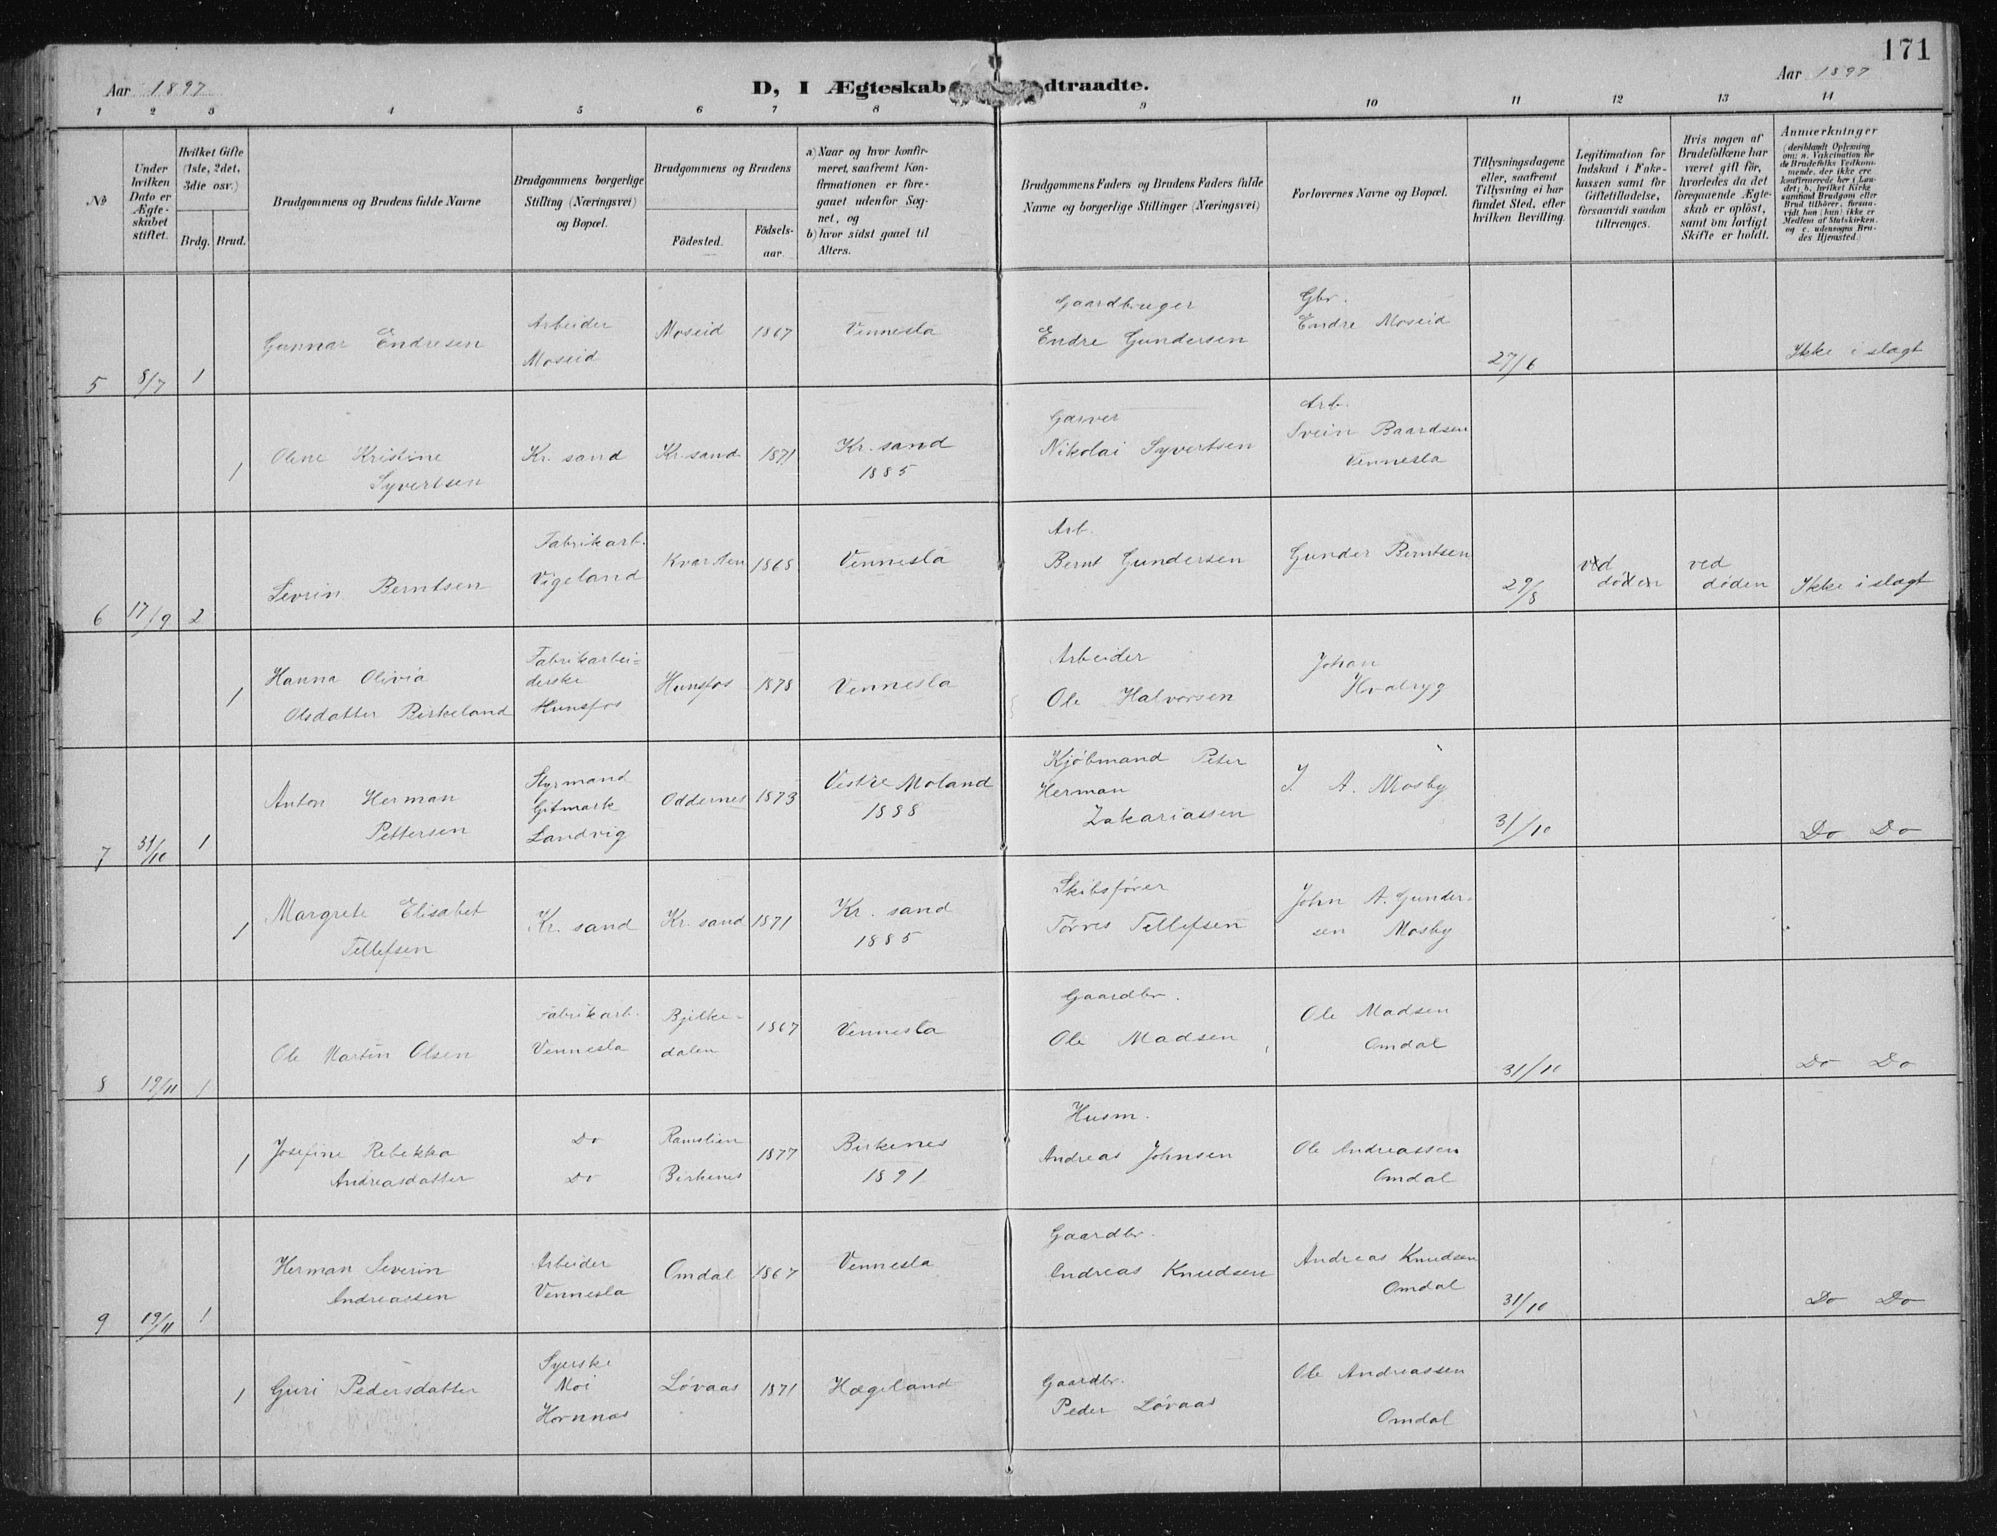 171
Aar 1897
D, I Ægteskab
dtraadte.
Aar 1897
1 2 3 4 5 6 7 8 9 10 11 12 13 14
No
Under hvilken Dato er Ægteskabet stiftet.
Hvilket Gifte (1ste, 2det, 3die osv.)
Brdg. Brud.
Brudgommens og Brudens fulde Navne
Brudgommens borgerlige Stilling (Næringsvei) og Bopæl.
Brudgommens og Brudens
Födested.
Födsels-aar.
a) Naar og hvor konfirmeret, saafremt Konfirmationen er foregaaet udenfor Sognet, og
b) hvor sidst gaael til Alters.
Brudgommens Faders og Brudens Faders fulde Navne og borgerlige Stillinger (Næringsvei)
Forlovernes Navne og Bopæl.
Tillysningsdagene eller, saafremt Tillysning ei har fundet Sted, efter hvilken Bevilling.
Legitimation for Indskud i Enkekassen samt for Giftetilladelse, forsaavidt saadan tiltrænges.
Hvis nogen af Brudefolkene har været gift för, hvorledes da det foregaaende Ægteskab er oplöst, samt om lovligt Skifte er holdt.
Anmerkninger (deriblandt Oplysning om: a. Vakcination for de Brudefolks Vedkommende, der ikke ere konfirmerede her i Landet; b. hvilket Kirkesamfund Brudgom eller Brud tilhörer, forsaavidt han (hun) ikke er Medlem af Statskirken, og c. udensogns Brudes Hjemsted.)
5 8/7 1 Gunnar Endresen
Arbeider
Moseid
Moseid 1867 Vennesla
Gaardbruger
Endre Gundersen
Gbr.
Endre Moseid
27/6
Ikke i slægt
1 Olene Kristine
Syvertsen
Kr. sand Kr. sand 1871
Kr. sand
1885
Garver
Nikolai Syvertsen
Arb.
Svein Baardsen
Vennesla
6 17/9 2 Sevrin Berntsen
Fabrikarb.
Vigeland
Kvarsten 1868 Vennesla
Arb.
Bernt Gundersen
Gunder Berntsen
29/8
ved
døden
ved
døden
Ikke i slægt
1 Hanna Olivia
Olsdatter Birkeland
Fabrikarbei=
derske
Hunsfos
Hunsfos 1878 Vennesla
Arbeider
Ole Halvorsen
Johan
Hvalryg
7 31/10 1 Anton Herman
Pettersen
Styrmand
Gitmark
Landvig
Oddernes 1873
Vestre Moland
1888
Kjøbmand Peter
Herman
Zakariassen
J. A. Mosby
31/10
Do Do
1 Margrete Elisabet
Tellefsen
Kr. sand Kr. sand 1871
Kr. sand
1885
Skibsfører
Torres Tellefsen
John A. Gunder-
sen Mosby
8 19/11 1 Ole Martin Olsen
Fabrikarb.
Vennesla
Bjelke-
dalen
1867 Vennesla
Gaardbr.
Ole Madsen
Ole Madsen
Omdal
31/10
Do Do
1 Josefine Rebekka
Andreasdatter
Do
Do
Ramslien
Birkenes
1877
Birkenes
1891
Husm.
Andreas Johnsen
Ole Andreassen
Omdal
9 19/11 1 Herman Severin
Andreassen
Arbeider
Vennesla
Omdal 1867 Vennesla
Gaardbr.
Andreas Knudsen
Andreas Knudsen
Omdal
31/10
Do Do
1 Guri Pedersdatter
Syerske
Moi
Hornnæs
Løvaas 1871 Hægeland
Gaardbr.
Peder Løvaas
Ole Andreassen
Omdal